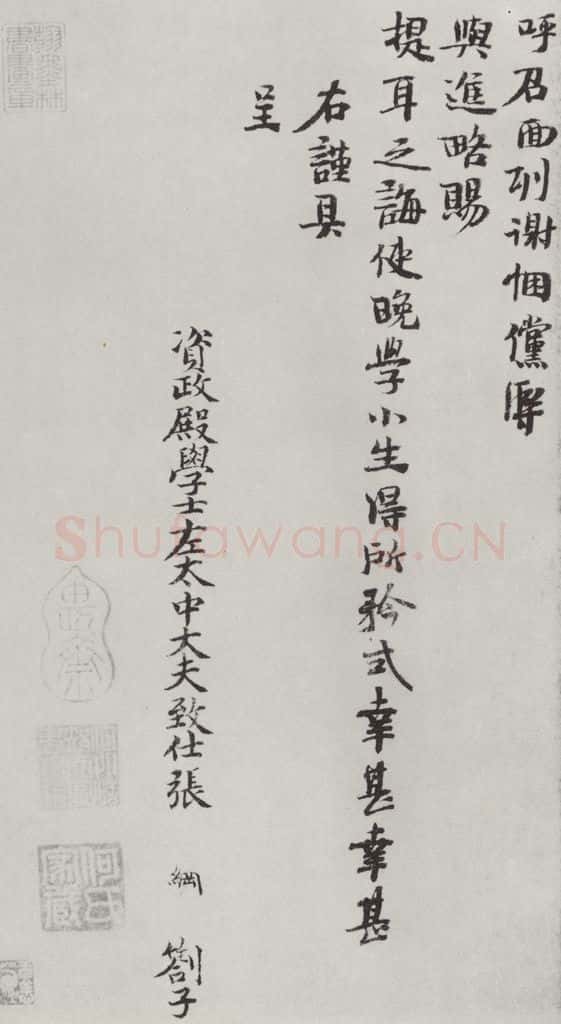 呼召面別谢悃儻辱
與進略賜
提耳之誨使晚學小生得所矜式幸甚幸甚
右謹具
呈
資政殿學士左太中大夫致仕張 綱 劄子
Shufawang.CN